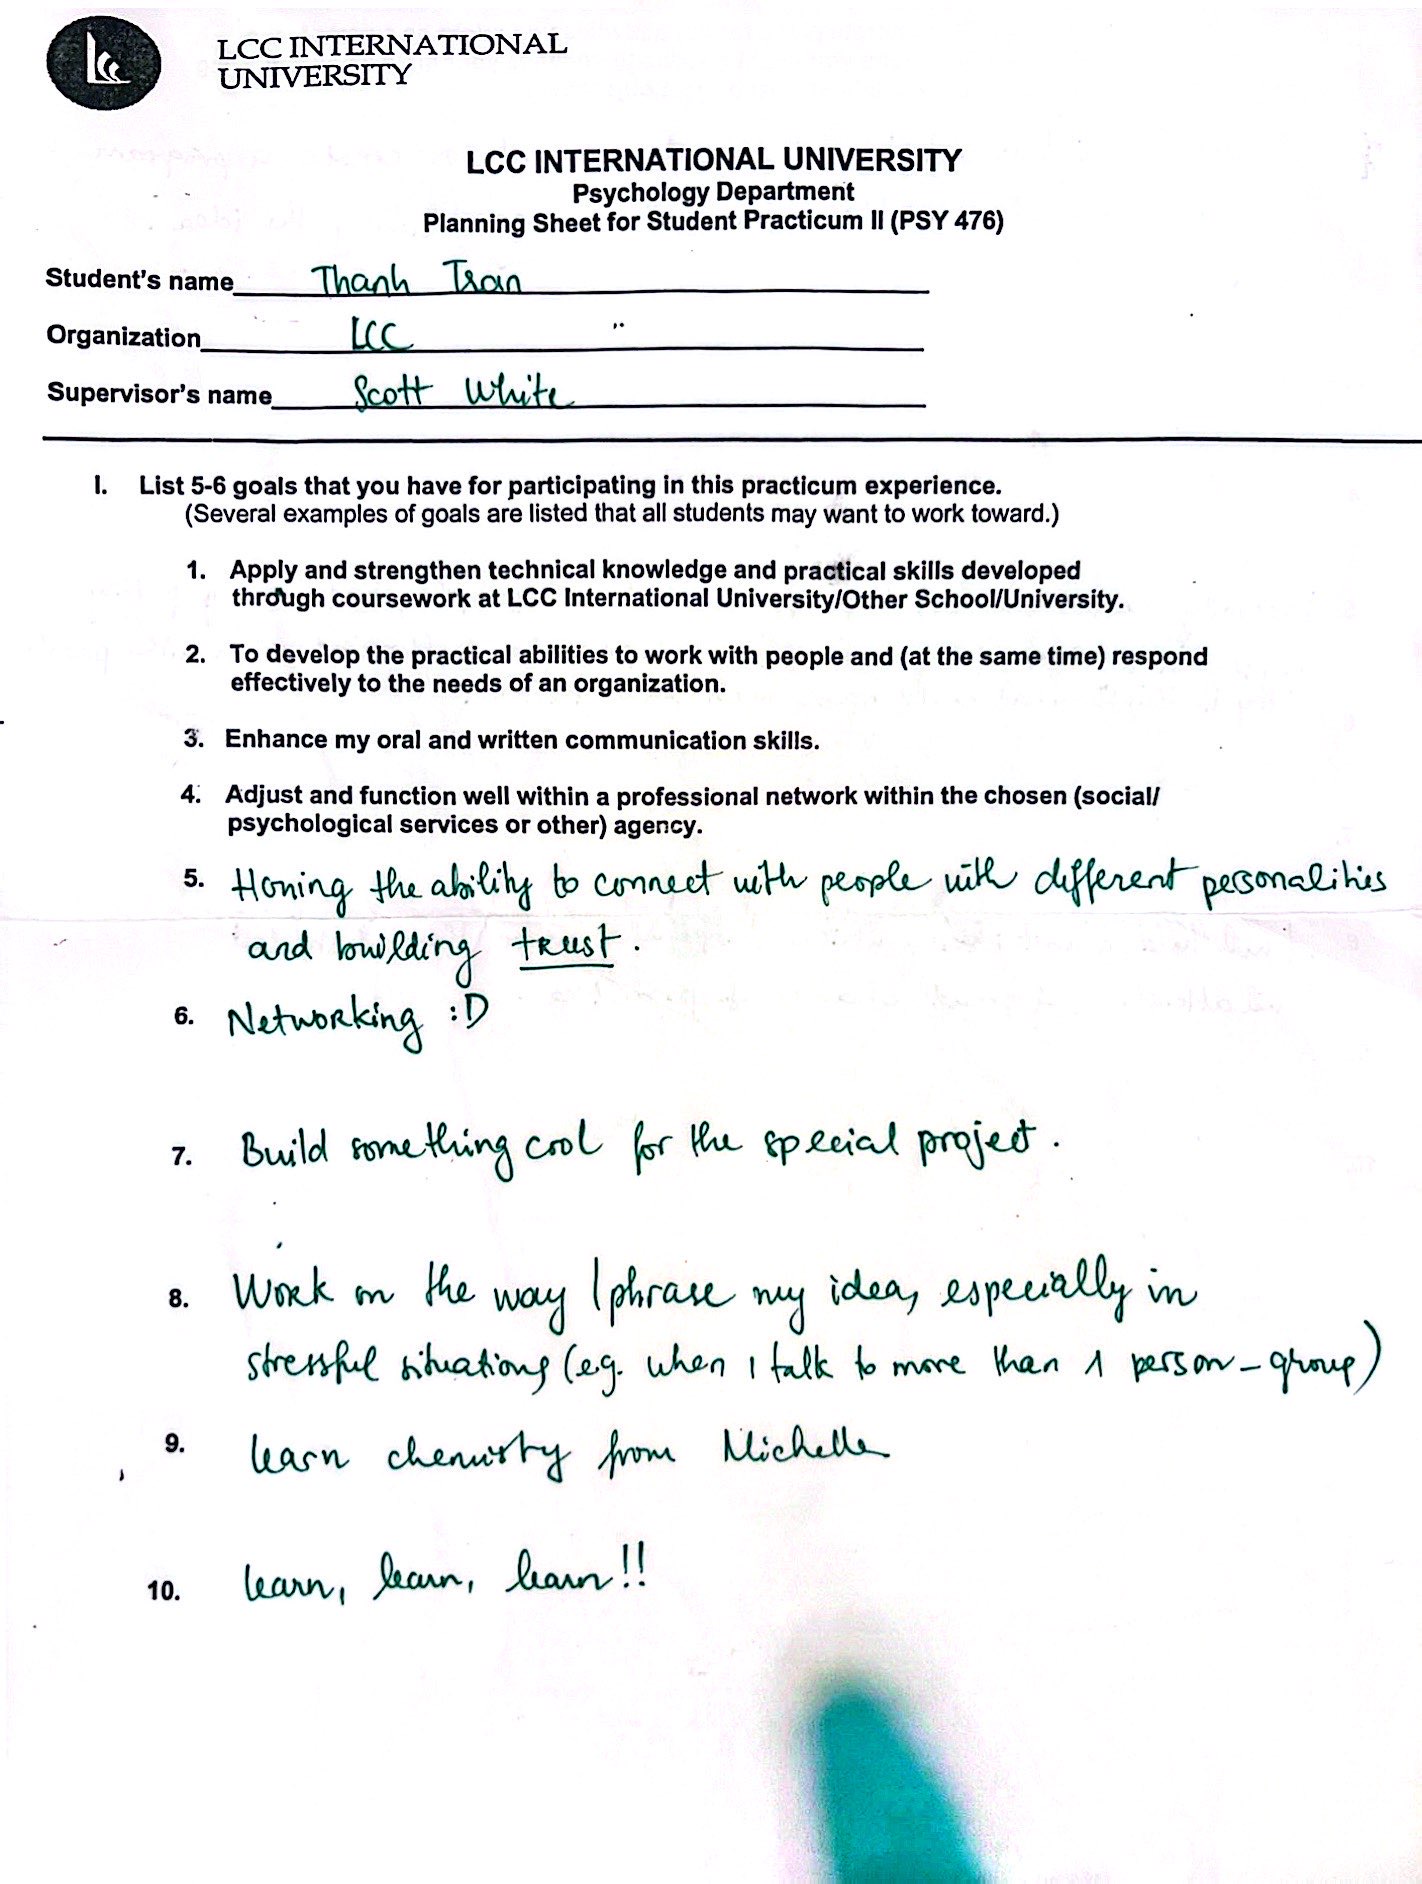 LCC INTERNATIONAL
UNIVERSITY
LCC INTERNATIONAL UNIVERSITY
Psychology Department
Planning Sheet for Student Practicum II (PSY 476)
Student's name Thanh Tran
Organization LCC
Supervisor's name Scott White
I. List 5-6 goals that you have for participating in this practicum experience.
(Several examples of goals are listed that all students may want to work toward.)
1. Apply and strengthen technical knowledge and practical skills developed
through coursework at LCC International University/Other School/University.
2. To develop the practical abilities to work with people and (at the same time) respond
effectively to the needs of an organization.
3. Enhance my oral and written communication skills.
4. Adjust and function well within a professional network within the chosen (social/
psychological services or other) agency.
5. Honing the ability to connect with people with different personalities
and building trust.
6. Networking :D
7. Build something cool for the special project.
8. Work on the way I phrase my idea, especially in
stressful situations (e.g. when I talk to more than 1 person - group)
9. learn chemistry from Michelle
10. learn, learn, learn!!